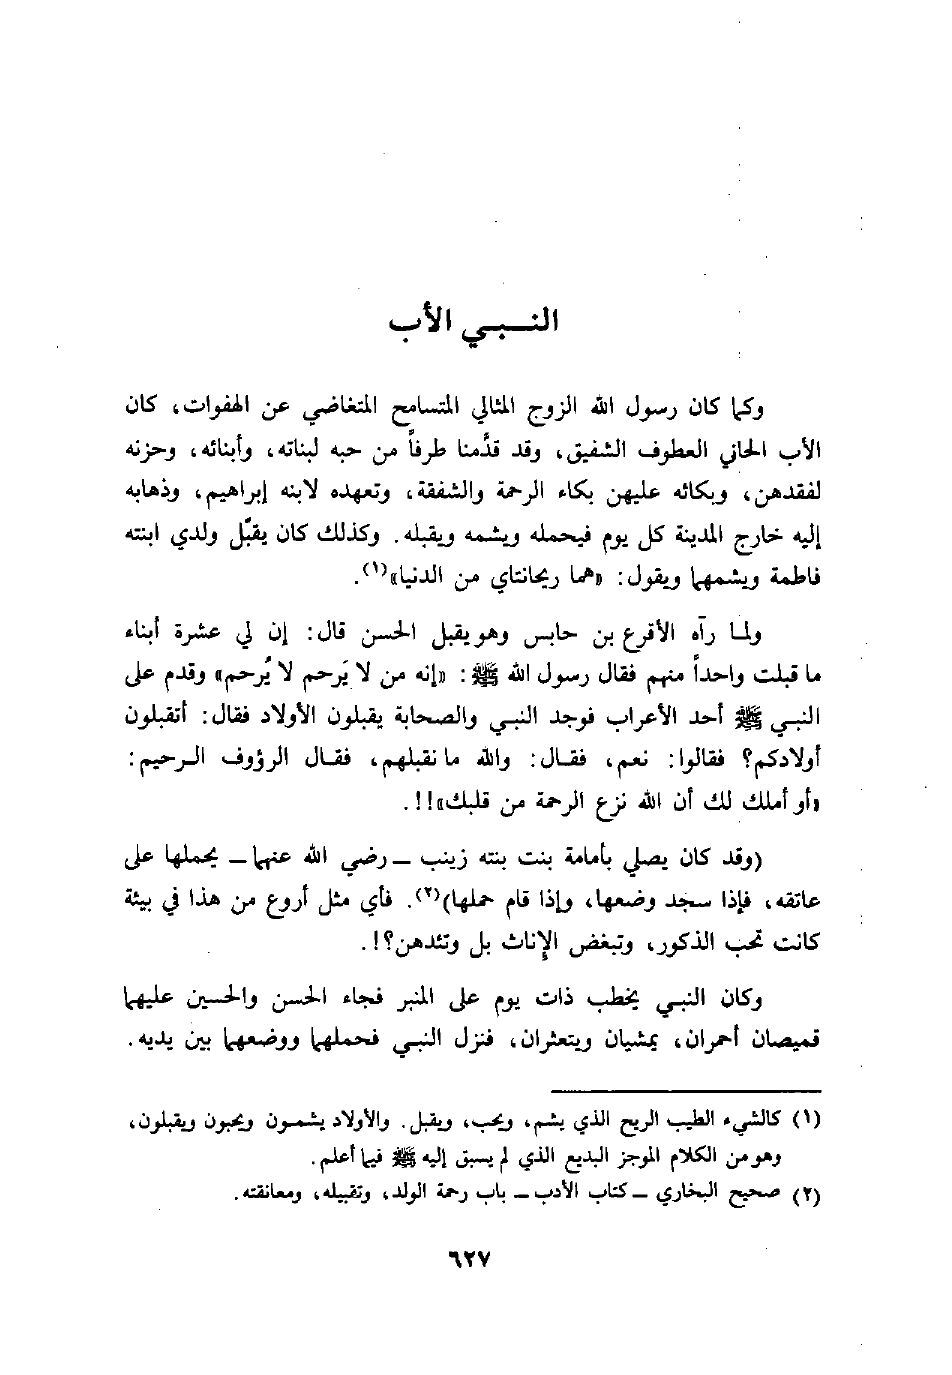 النــبــي الأب
وكما كان رسول الله الزوج المثالي المتسامح المتغاضي عن الهفوات، كان
الأب الحاني العطوف الشفيق، وقد قدَّمنا طرفاً من حبه لبناته، وأبنائه، وحزنه
لفقدهن، وبكائه عليهن بكاء الرحمة والشفقة، وتعهده لابنه إبراهيم، وذهابه
إليه خارج المدينة كل يوم فيحمله ويشمه ويقبله. وكذلك كان يقبَّل ولدي ابنته
فاطمة ويشمهما ويقول: «هما ريحانتاي من الدنيا»(١).
ولما رآه الأقرع بن حابس وهو يقبل الحسن قال: إن لي عشرة أبناء
ما قبلت واحداً منهم فقال رسول الله ﷺ: «إنه من لا يَرحم لا يُرحم» وقدم على
النبي ﷺ أحد الأعراب فوجد النبي والصحابة يقبلون الأولاد فقال: أتقبلون
أولادكم؟ فقالوا: نعم، فقال: والله ما نقبلهم، فقال الرؤوف الرحيم:
«أو أملك لك أن الله نزع الرحمة من قلبك»!!.
(وقد كان يصلي بأمامة بنت بنته زينب ـ رضي الله عنهما ـ يحملها على
عاتقه، فإذا سجد وضعها، وإذا قام حملها)(٢). فأي مثل أروع من هذا في بيئة
كانت تحب الذكور، وتبغض الإناث بل وتئدهن؟!.
وكان النبي يخطب ذات يوم على المنبر فجاء الحسن والحسين عليهما
قميصان أحمران، يمشيان ويتعثران، فنزل النبي فحملهما ووضعهما بين يديه.
(١) كالشيء الطيب الريح الذي يشم، ويحب، ويقبل. والأولاد يشمون ويحبون ويقبلون،
وهو من الكلام الموجز البديع الذي لم يسبق إليه ﷺ فيما أعلم.
(٢) صحيح البخاري ـ كتاب الأدب ـ باب رحمة الولد، وتقبيله، ومعانقته.
٦٢٧